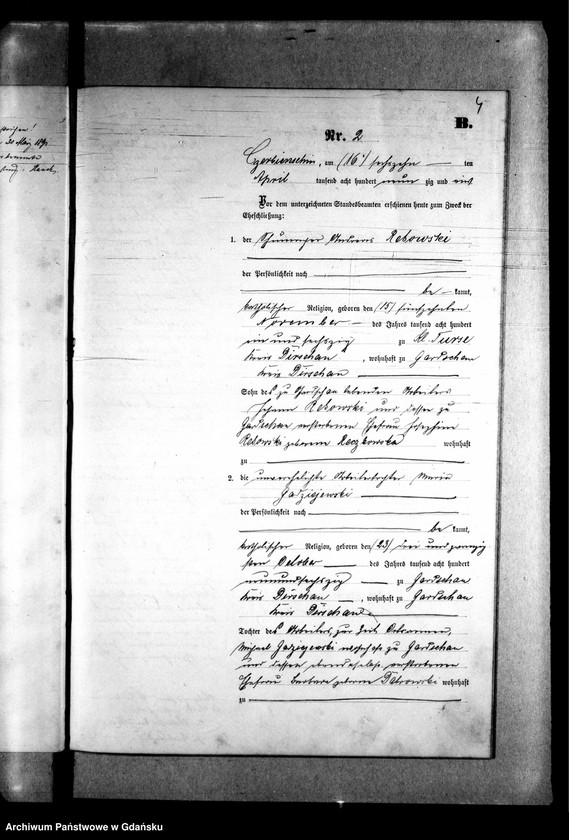 4
B.
Nr. 2
Czerbienschin, am (16) sechszehn ten
April tausend acht hundert neun zig und eins
Vor dem unterzeichneten Standesbeamten erschienen heute zum Zweck der
Eheschließung:
1. der Andreas Rekowski
der Persönlichkeit nach
be kannt,
katholischer Religion, geboren den (15) fünfzehnten
November des Jahres tausend acht hundert
ein und sechszig zu Kl. Turse
Kreis Dirschau, wohnhaft zu Gardschau
Kreis Dirschau
Sohn des zu Gardschau lebenden Arbeiters
Johann Rekowski und dessen zu
Gardschau verstorbenen Ehefrau Josephine
Rekowski geborene wohnhaft
zu
2. die unverehelichte Arbeitertochter Maria
der Persönlichkeit nach
be kannt,
katholischer Religion, geboren den (23) drei und zwanzig
sten October des Jahres tausend acht hundert
neunundsechszig zu Gardschau
Kreis Dirschau, wohnhaft zu Gardschau
Kreis Dirschau
Tochter des Arbeiters, zur Zeit Ortsarmen,
Michael wohnhaft zu Gardschau
und dessen ebendaselbst verstorbenen
Ehefrau Barbara geborene wohnhaft
zu
Archiwum Państwowe w Gdańsku